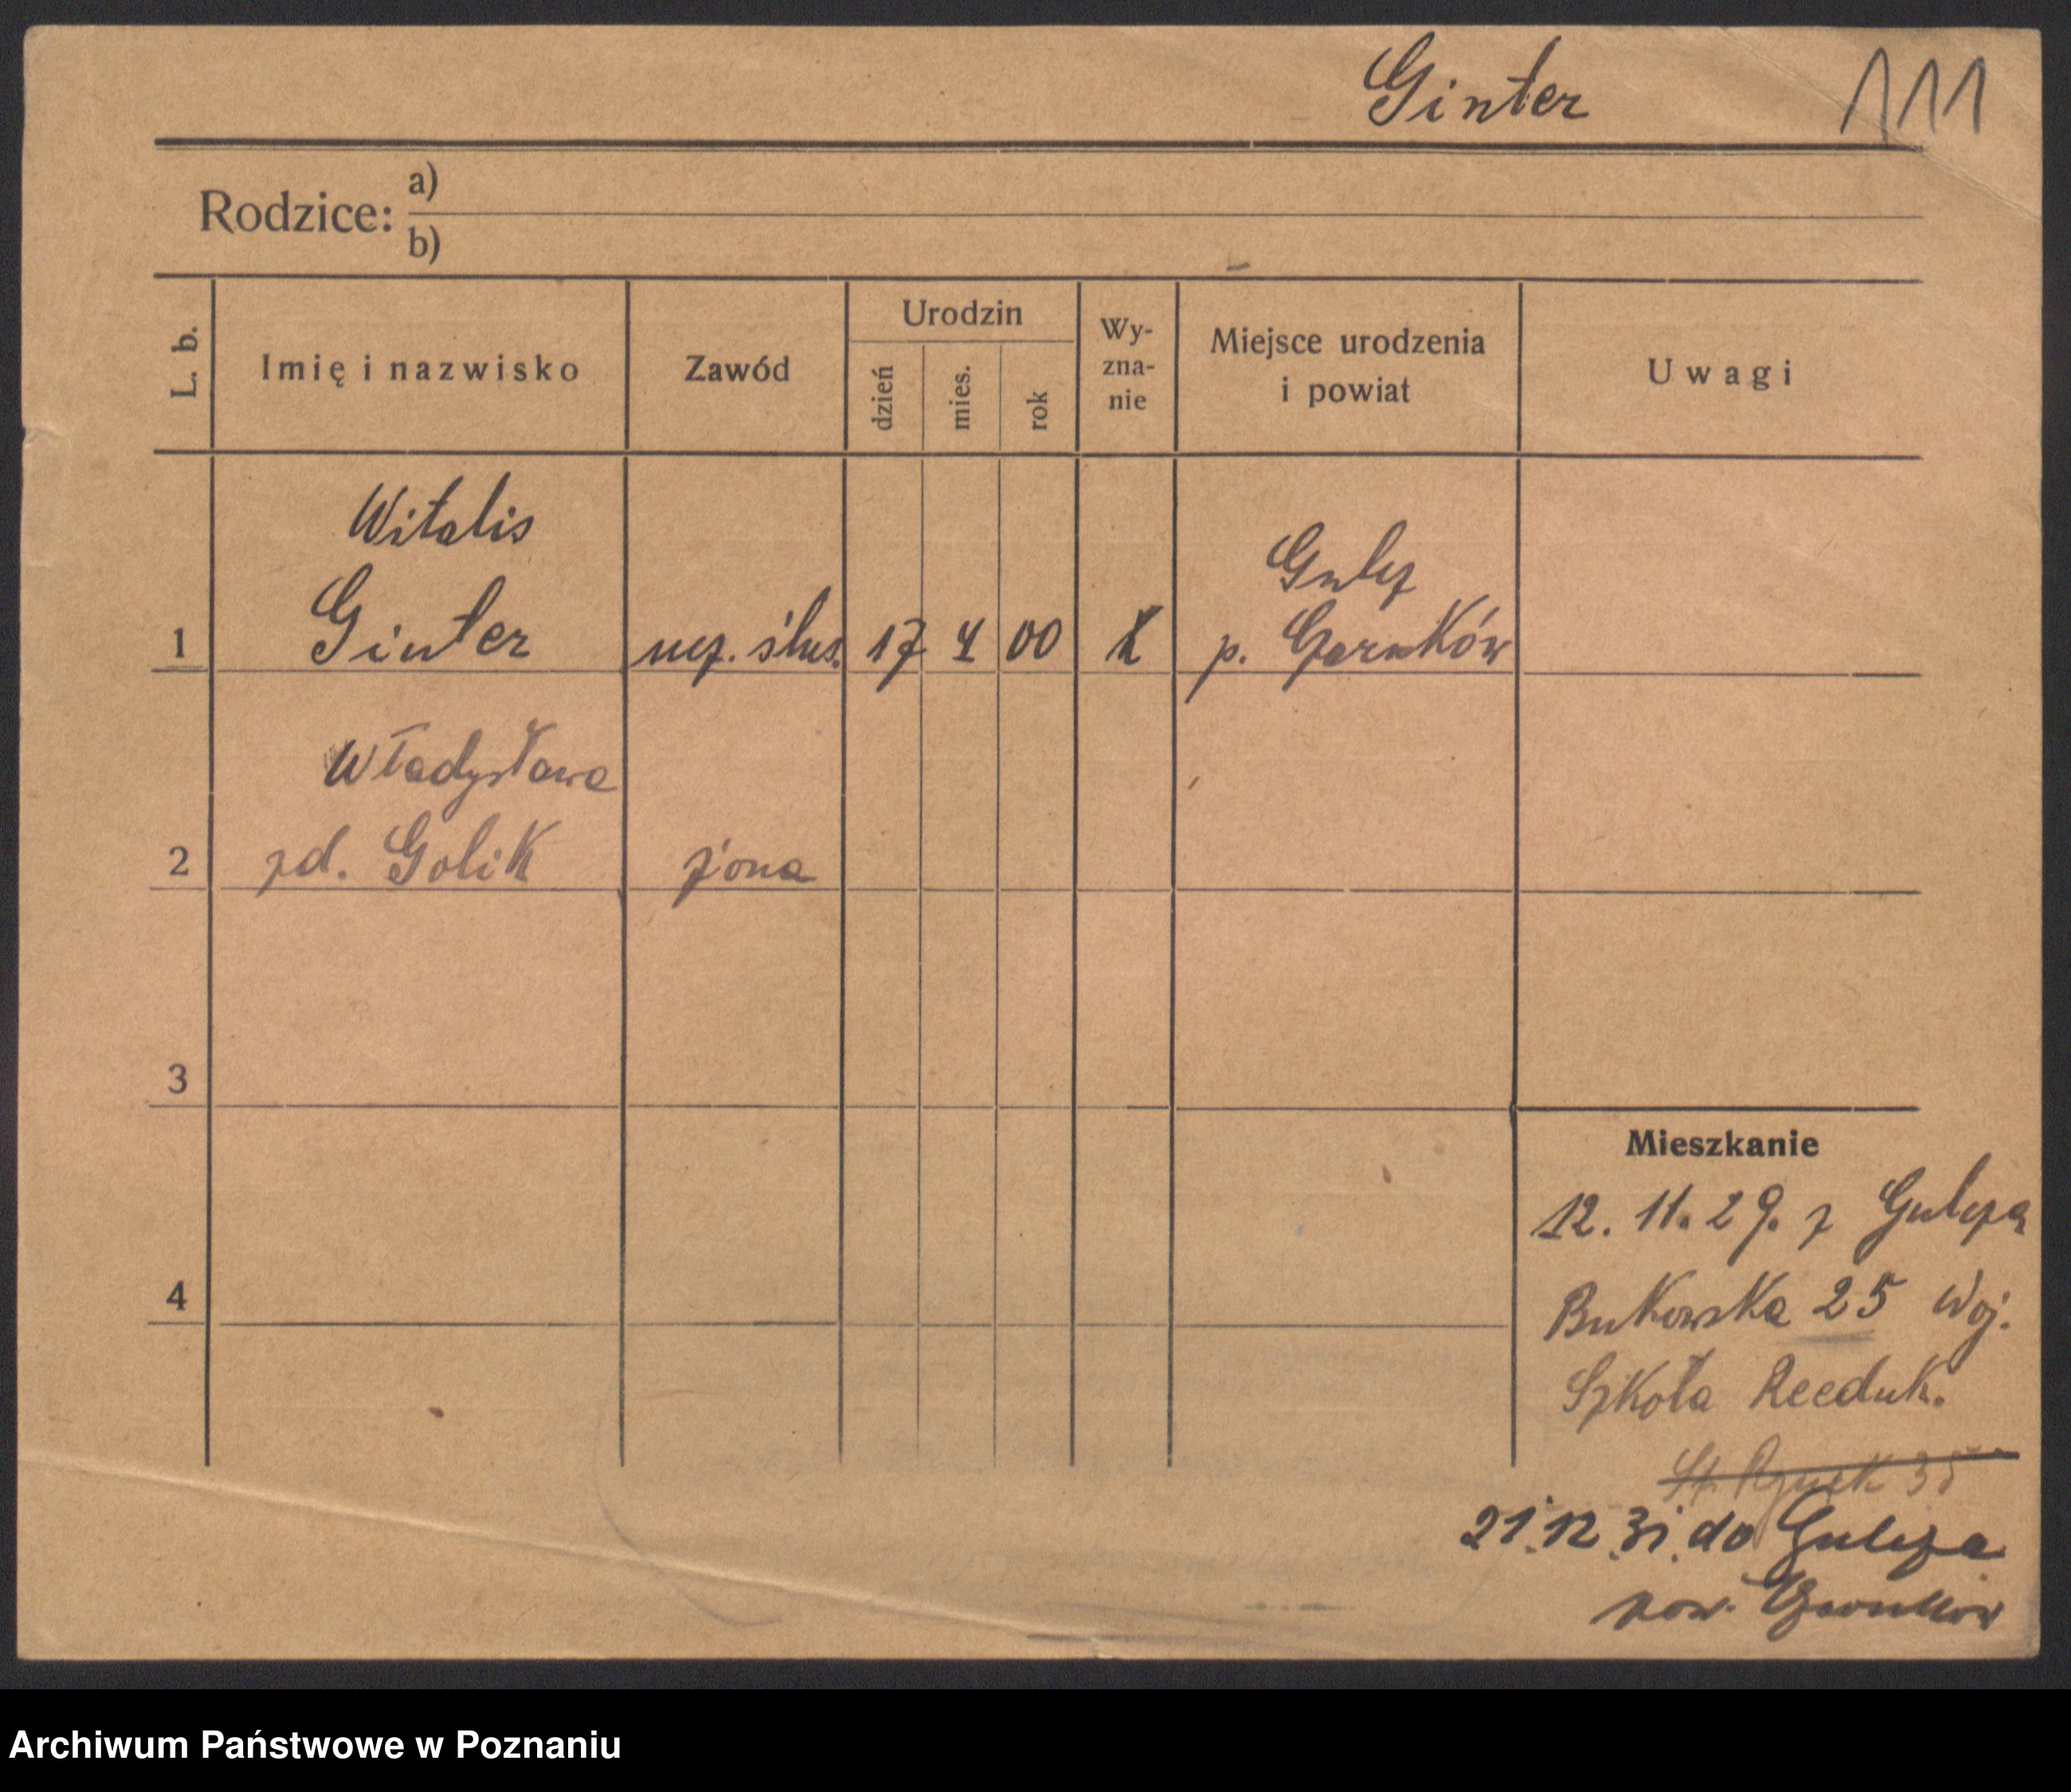 Ginter 111
Rodzice: a)
b)
L. b.
Imię i nazwisko
Zawód
Urodzin
dzień
mies.
rok
Wy-
zna-
nie
Miejsce urodzenia
i powiat
Uwagi
Witalis
Gulcz
1 Ginter ucz. ślus. 17 4 00 K p. Czarnków
Władysława
2 zd. Golik żona
3
Mieszkanie
12. 11. 29. z Gulcza
4
Bukowska 25 Woj.
Szkoła Reeduk.
St. Rynek 35
21.12.31. do Gulcza
pow. Czarnków
Archiwum Państwowe w Poznaniu